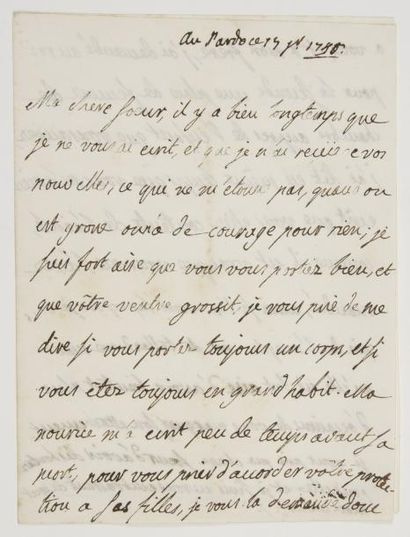 au Pardo ce 17 jr 1750.
Ma chere soeur, il y a bien longtemps que
je ne vous ai ecrit, et que je n'ai reçu de vos
nouvelles, ce qui ne m'étone pas, quand on
est grosse on n'a de courage pour rien; je
suis fort aise que vous vous portez bien, et
que vôtre ventre grossit, je vous prie de me
dire si vous portez toujours un corps, et si
vous êtez toujours en grand habit. Ma
nourice m'a ecrit peu de temps avant sa
mort, pour vous prier d'accorder vôtre protec-
tion a ses filles, je vous la demande donc